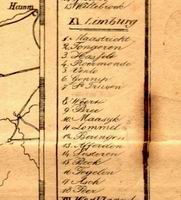 Hamm
Willebroek
XI Limburg
1. Maastricht
2. Tongeren
3. Hasselt
4. Roermonde
5. Venlo
6. Gennep
7. St Truyen
8. Weert
9. Bree
10. Maasyk
11. Lommel
12. Beringen
13. Afferden
14. Susteren
15. Beek
16. Tegelen
17. Asch
18. Peer